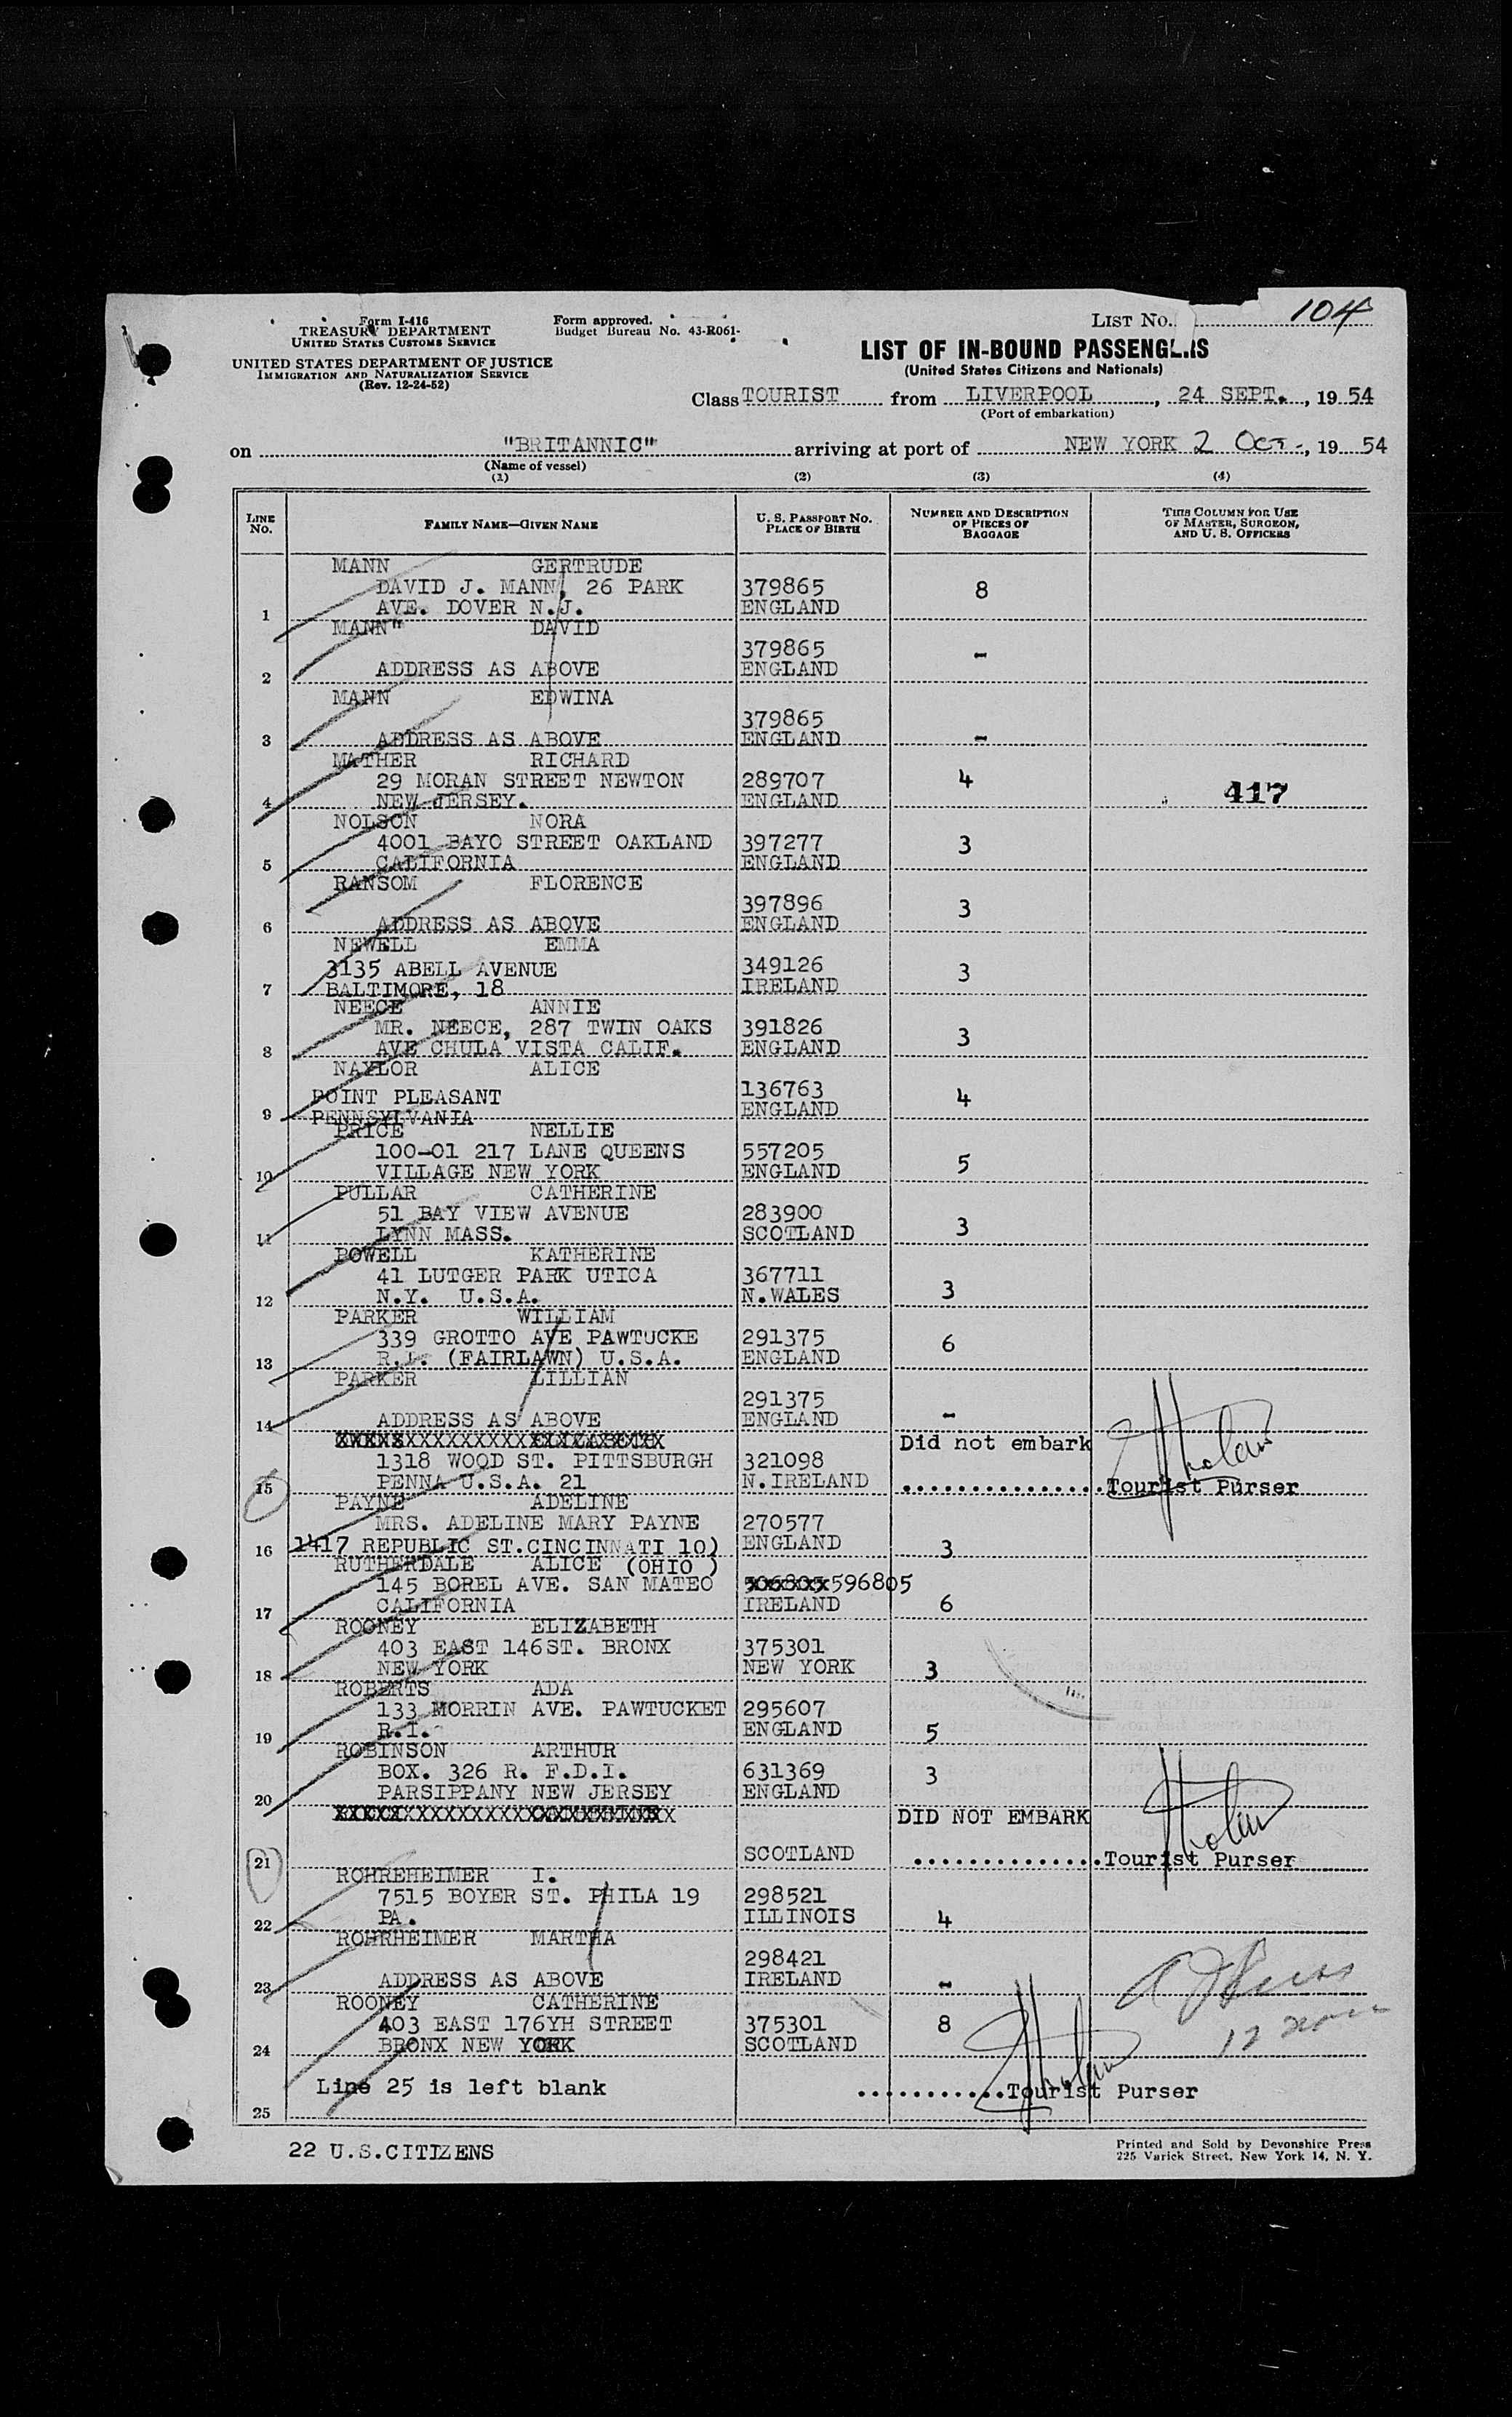 LIST No. 104
Form I-416
TREASURY DEPARTMENT
UNITED STATES CUSTOMS SERVICE
Form approved.
Budget Bureau No. 43-R061-
UNITED STATES DEPARTMENT OF JUSTICE
IMMIGRATION AND NATURALIZATION SERVICE
(Rev. 12-24-52)
LIST OF IN-BOUND PASSENGERS
(United States Citizens and Nationals)
Class TOURIST from LIVERPOOL, 24 SEPT., 1954
(Port of embarkation)
on "BRITANNIC" arriving at port of NEW YORK 2 Oct., 1954
(Name of vessel)
(1) (2) (3) (4)
LINE No. FAMILY NAME—GIVEN NAME U. S. PASSPORT NO. PLACE OF BIRTH NUMBER AND DESCRIPTION OF PIECES OF BAGGAGE THIS COLUMN FOR USE OF MASTER, SURGEON, AND U. S. OFFICERS
MANN GERTRUDE
DAVID J. MANN, 26 PARK 379865 8
1 AVE. DOVER N.J. ENGLAND
MANN" DAVID
379865 -
2 ADDRESS AS ABOVE ENGLAND
MANN EDWINA
379865
3 ADDRESS AS ABOVE ENGLAND -
MATHER RICHARD
29 MORAN STREET NEWTON 289707 4
4 NEW JERSEY. ENGLAND 417
NOLSON NORA
4001 BAYO STREET OAKLAND 397277 3
5 CALIFORNIA ENGLAND
RANSOM FLORENCE
397896 3
6 ADDRESS AS ABOVE ENGLAND
NEWELL EMMA
3135 ABELL AVENUE 349126 3
7 BALTIMORE, 18 IRELAND
NEECE ANNIE
MR. NEECE, 287 TWIN OAKS 391826 3
8 AVE CHULA VISTA CALIF. ENGLAND
NAYLOR ALICE
POINT PLEASANT 136763 4
9 PENNSYLVANIA ENGLAND
PRICE NELLIE
100-01 217 LANE QUEENS 557205 5
10 VILLAGE NEW YORK ENGLAND
PULLAR CATHERINE
51 BAY VIEW AVENUE 283900 3
11 LYNN MASS. SCOTLAND
POWELL KATHERINE
41 LUTGER PARK UTICA 367711 3
12 N.Y. U.S.A. N.WALES
PARKER WILLIAM
339 GROTTO AVE PAWTUCKE 291375 6
13 R.I. (FAIRLAWN) U.S.A. ENGLAND
PARKER LILLIAN
291375
14 ADDRESS AS ABOVE ENGLAND -
Did not embark
1318 WOOD ST. PITTSBURGH 321098
15 PENNA U.S.A. 21 N.IRELAND ...............Tourist Purser
PAYNE ADELINE
MRS. ADELINE MARY PAYNE 270577
16 1417 REPUBLIC ST.CINCINNATI 10) ENGLAND 3
RUTHERDALE ALICE (OHIO )
145 BOREL AVE. SAN MATEO 596805
17 CALIFORNIA IRELAND 6
ROONEY ELIZABETH
403 EAST 146ST. BRONX 375301
18 NEW YORK NEW YORK 3
ROBERTS ADA
133 MORRIN AVE. PAWTUCKET 295607
19 R.I. ENGLAND 5
ROBINSON ARTHUR
BOX. 326 R. F.D.I. 631369 3
20 PARSIPPANY NEW JERSEY ENGLAND
DID NOT EMBARK
21 SCOTLAND ..............Tourist Purser
ROHREHEIMER I.
7515 BOYER ST. PHILA 19 298521
22 PA. ILLINOIS 4
ROHRHEIMER MARTHA
298421
23 ADDRESS AS ABOVE IRELAND -
ROONEY CATHERINE
403 EAST 176YH STREET 375301 8
24 BRONX NEW YORK SCOTLAND
Line 25 is left blank ...........Tourist Purser
25
22 U.S.CITIZENS
Printed and Sold by Devonshire Press
225 Varick Street, New York 14, N. Y.